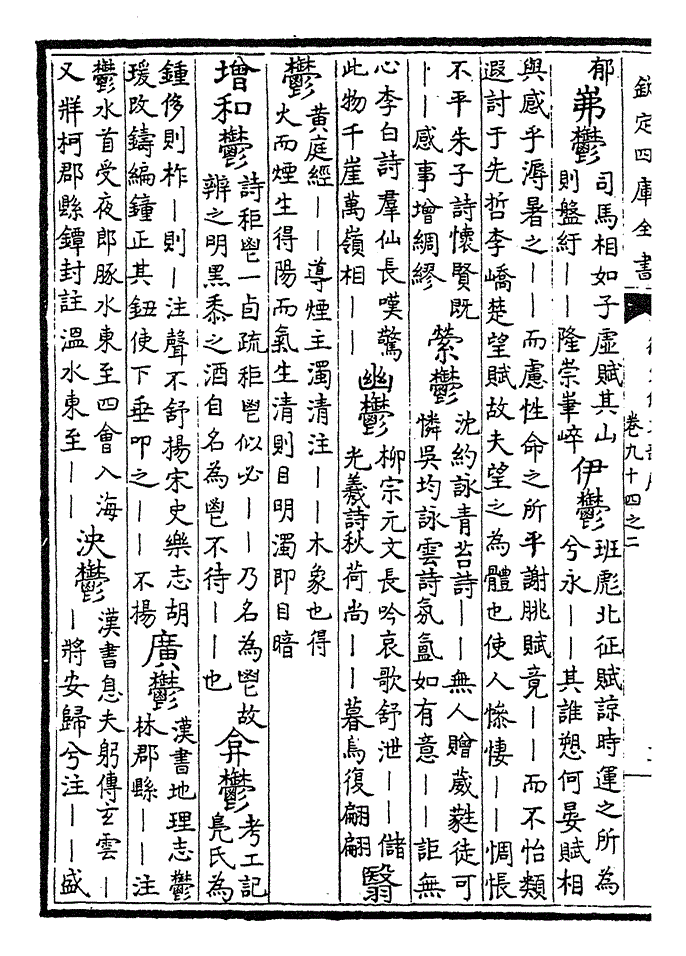 欽定四庫全書
卷九十四之二
郁
岪鬱
司馬相如子虛賦其山
則盤紆丨丨隆崇峍崒
伊鬱
班彪北征賦諒時運之所為
兮永丨丨其誰愬何晏賦相
與感乎溽暑之丨丨而慮性命之所平謝朓賦竟丨丨而不怡類
遐討于先哲李嶠楚望賦故夫望之為體也使人慘悽丨丨惆悵
不平朱子詩懷賢既
丨丨感事增綢繆
縈鬱
沈約詠青苔詩丨丨無人贈葳蕤徒可
憐吳均詠雲詩氛氳如有意丨丨詎無
心李白詩羣仙長嘆驚
此物千崖萬嶺相丨丨
幽鬱
柳宗元文長吟哀歌舒泄丨丨儲
光羲詩秋荷尚丨丨暮鳥復翩翩
翳
鬱
黃庭經丨丨導煙主濁清注丨丨木象也得
火而煙生得陽而氣生清則目明濁即目暗
增和鬱
詩秬鬯一卣疏秬鬯似必丨丨乃名為鬯故
辨之明黑黍之酒自名為鬯不待丨丨也
弇鬱
考工記
鳧氏為
鍾侈則柞丨則丨注聲不舒揚宋史樂志胡
瑗改鑄編鐘正其鈕使下垂叩之丨丨不揚
廣鬱
漢書地理志鬱
林郡縣丨丨注
鬱水首受夜郎豚水東至四會入海
又牂柯郡縣鐔封註溫水東至丨丨
泱鬱
漢書息夫躬傳玄雲丨
丨將安歸兮注丨丨盛